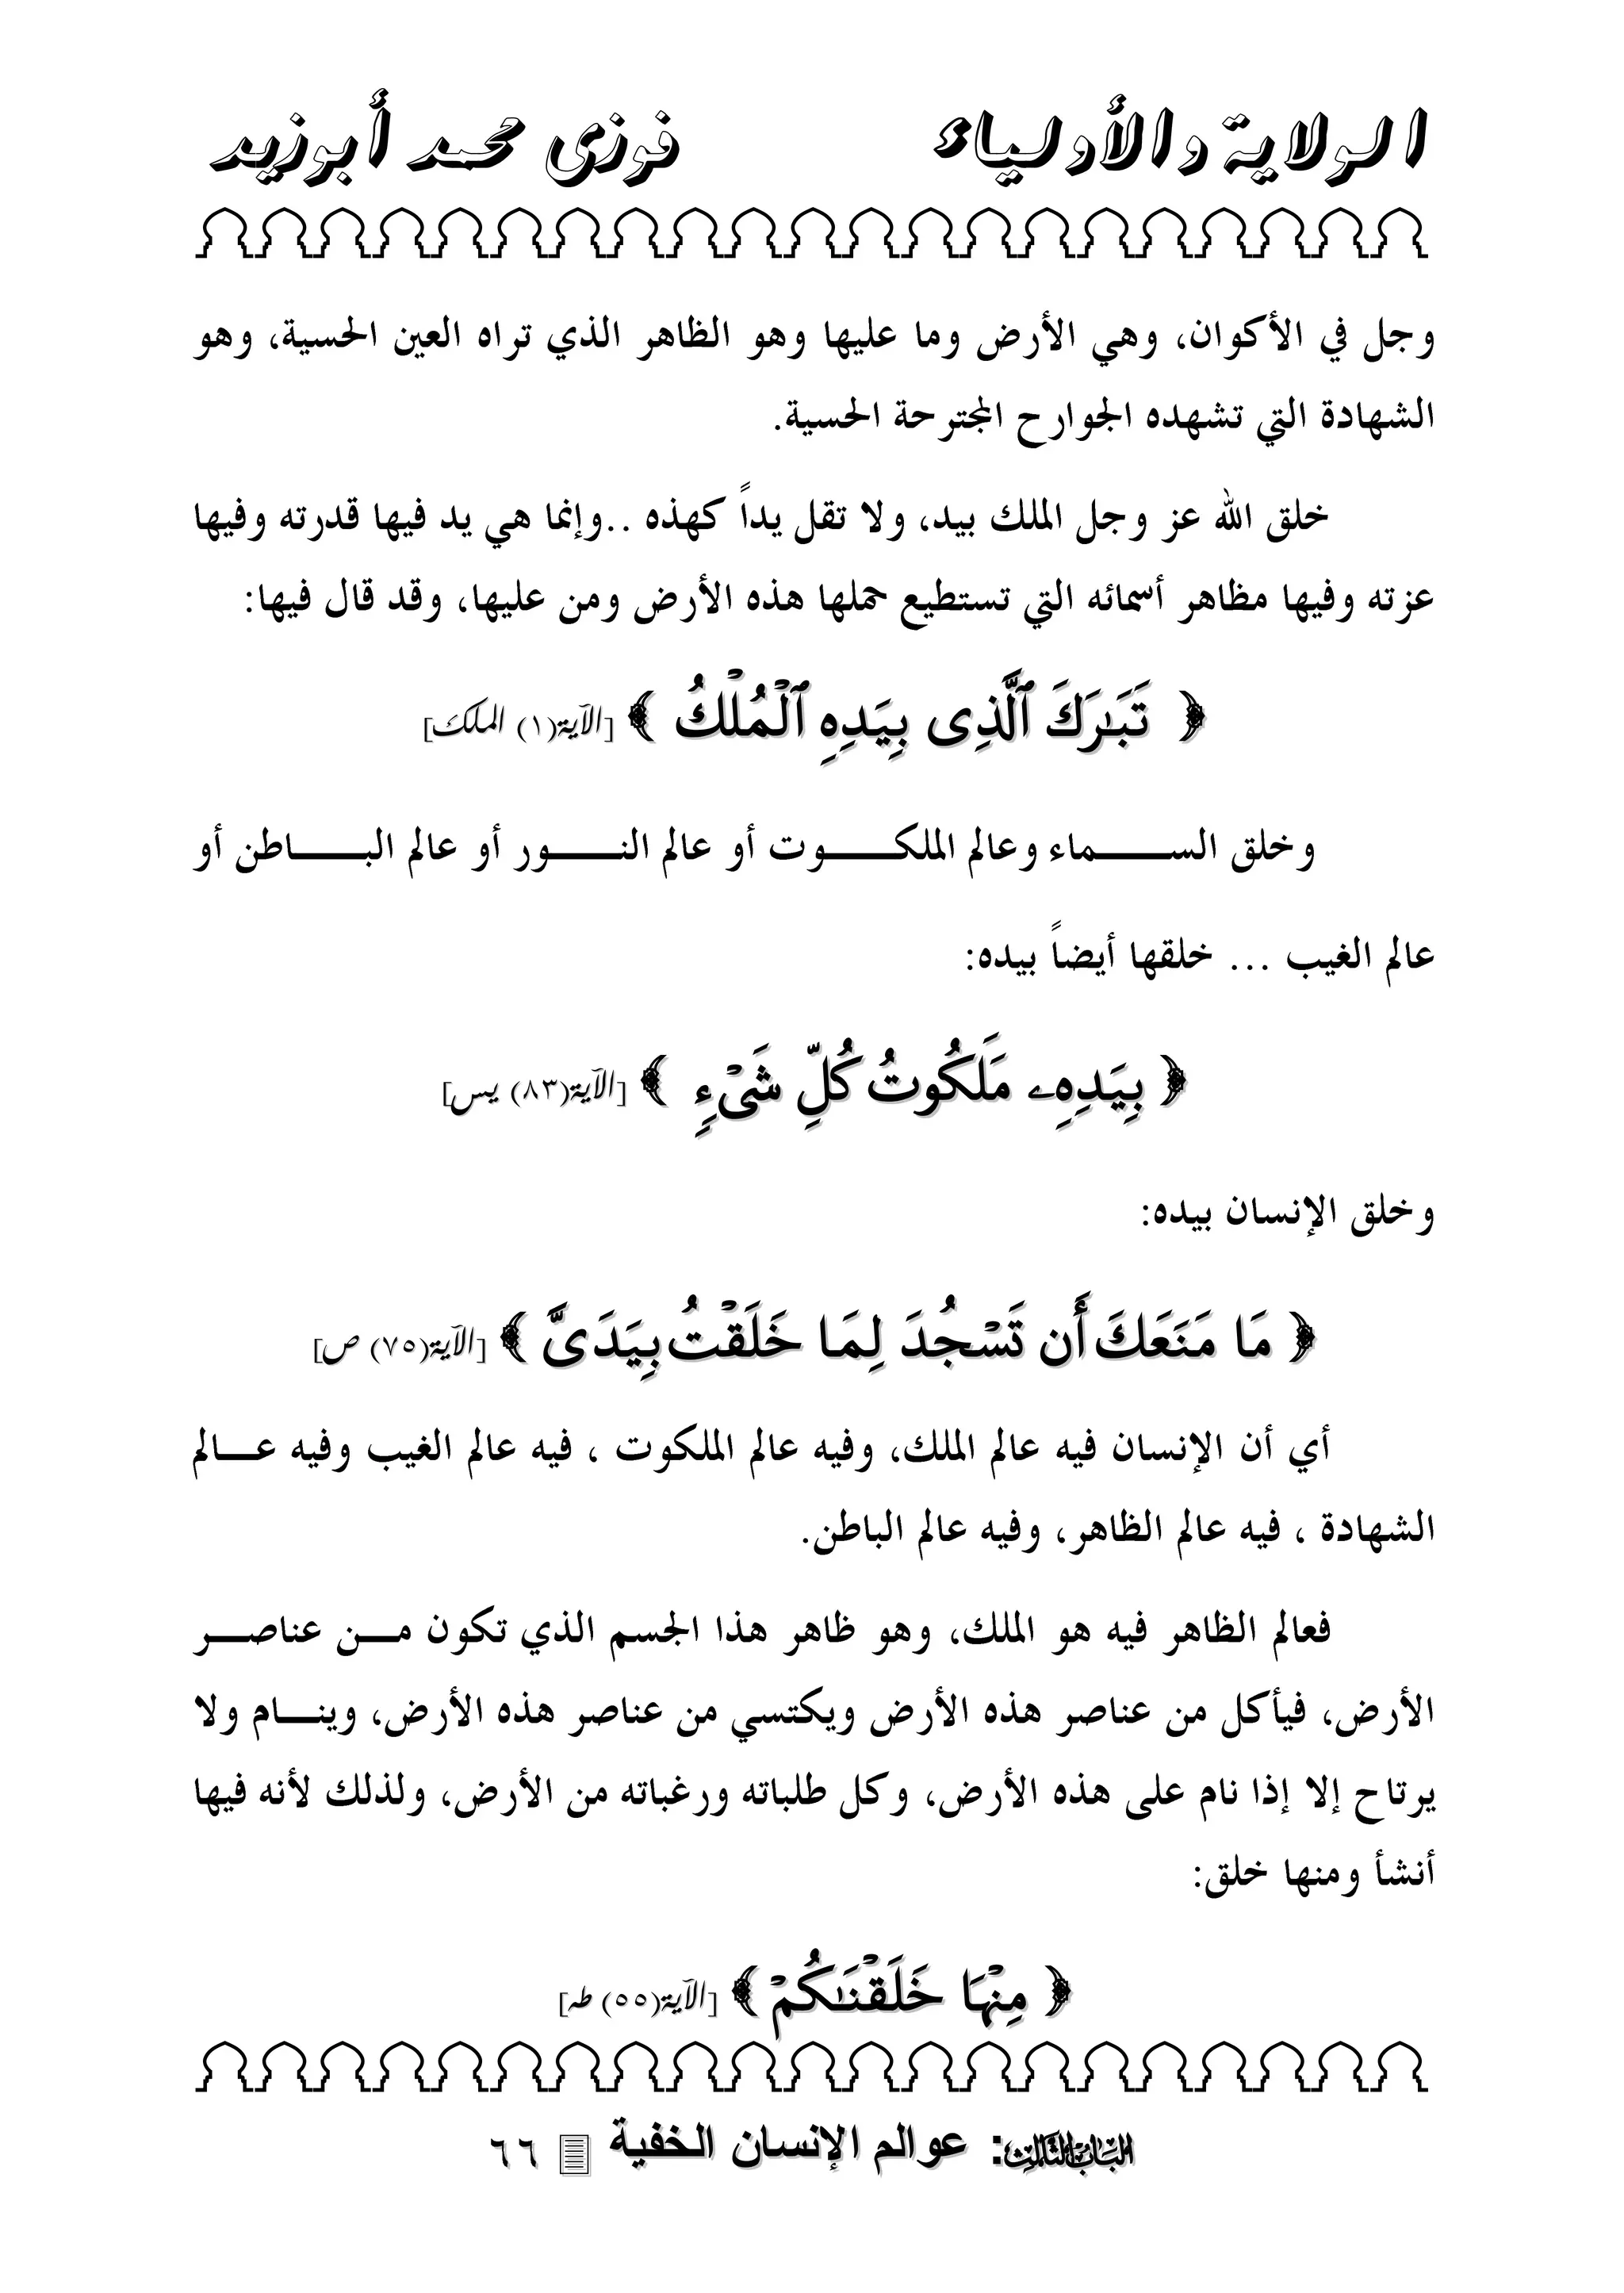 الولاية والأولياء فوزى محمد أبوزيد
وجل في الأكوان، وهي الأرض وما عليها وهو الظاهر الذي تراه العين الحسية، وهو
الشهادة التي تشهده الجوارح المجترحة الحسية.
خلق الله عز وجل الملك بيد، ولا تقل يداً كهذه ..وإنما هي يد فيها قدرته وفيها
عزته وفيها مظاهر أسمائه التي تستطيع حملها هذه الأرض ومن عليها، وقد قال فيها:
﴿ تَبَـٰرَكَ ٱلَّذِى بِيَدِهِ ٱلْمُلْكُ ﴾ [الآية(١) الملك]
وخلق الســـــماء وعالم الملكـــــوت أو عالم النـــــور أو عالم البـــــاطن أو
عالم الغيب ... خلقها أيضاً بيده:
﴿ بِيَدِهِۦ مَلَكُوتُ كُلِّ شَىْءٍ ﴾ [الآية(٨٣) يس]
وخلق الإنسان بيده:
﴿ مَا مَنَعَكَ أَن تَسْجُدَ لِمَا خَلَقْتُ بِيَدَىَّ ﴾ [الآية(٧٥) ص]
أي أن الإنسان فيه عالم الملك، وفيه عالم الملكوت ، فيه عالم الغيب وفيه عـــالم
الشهادة ، فيه عالم الظاهر، وفيه عالم الباطن.
فعالم الظاهر فيه هو الملك، وهو ظاهر هذا الجسم الذي تكون مـــن عناصـــر
الأرض، فيأكل من عناصر هذه الأرض ويكتسي من عناصر هذه الأرض، وينـــام ولا
يرتاح إلا إذا نام على هذه الأرض، وكل طلباته ورغباته من الأرض، ولذلك لأنه فيها
أنشأ ومنها خلق:
﴿ مِنْهَا خَلَقْنَـٰكُمْ ﴾ [الآية(٥٥) طه]
الباب الثالث: عوالم الإنسان الخفية ٦٦